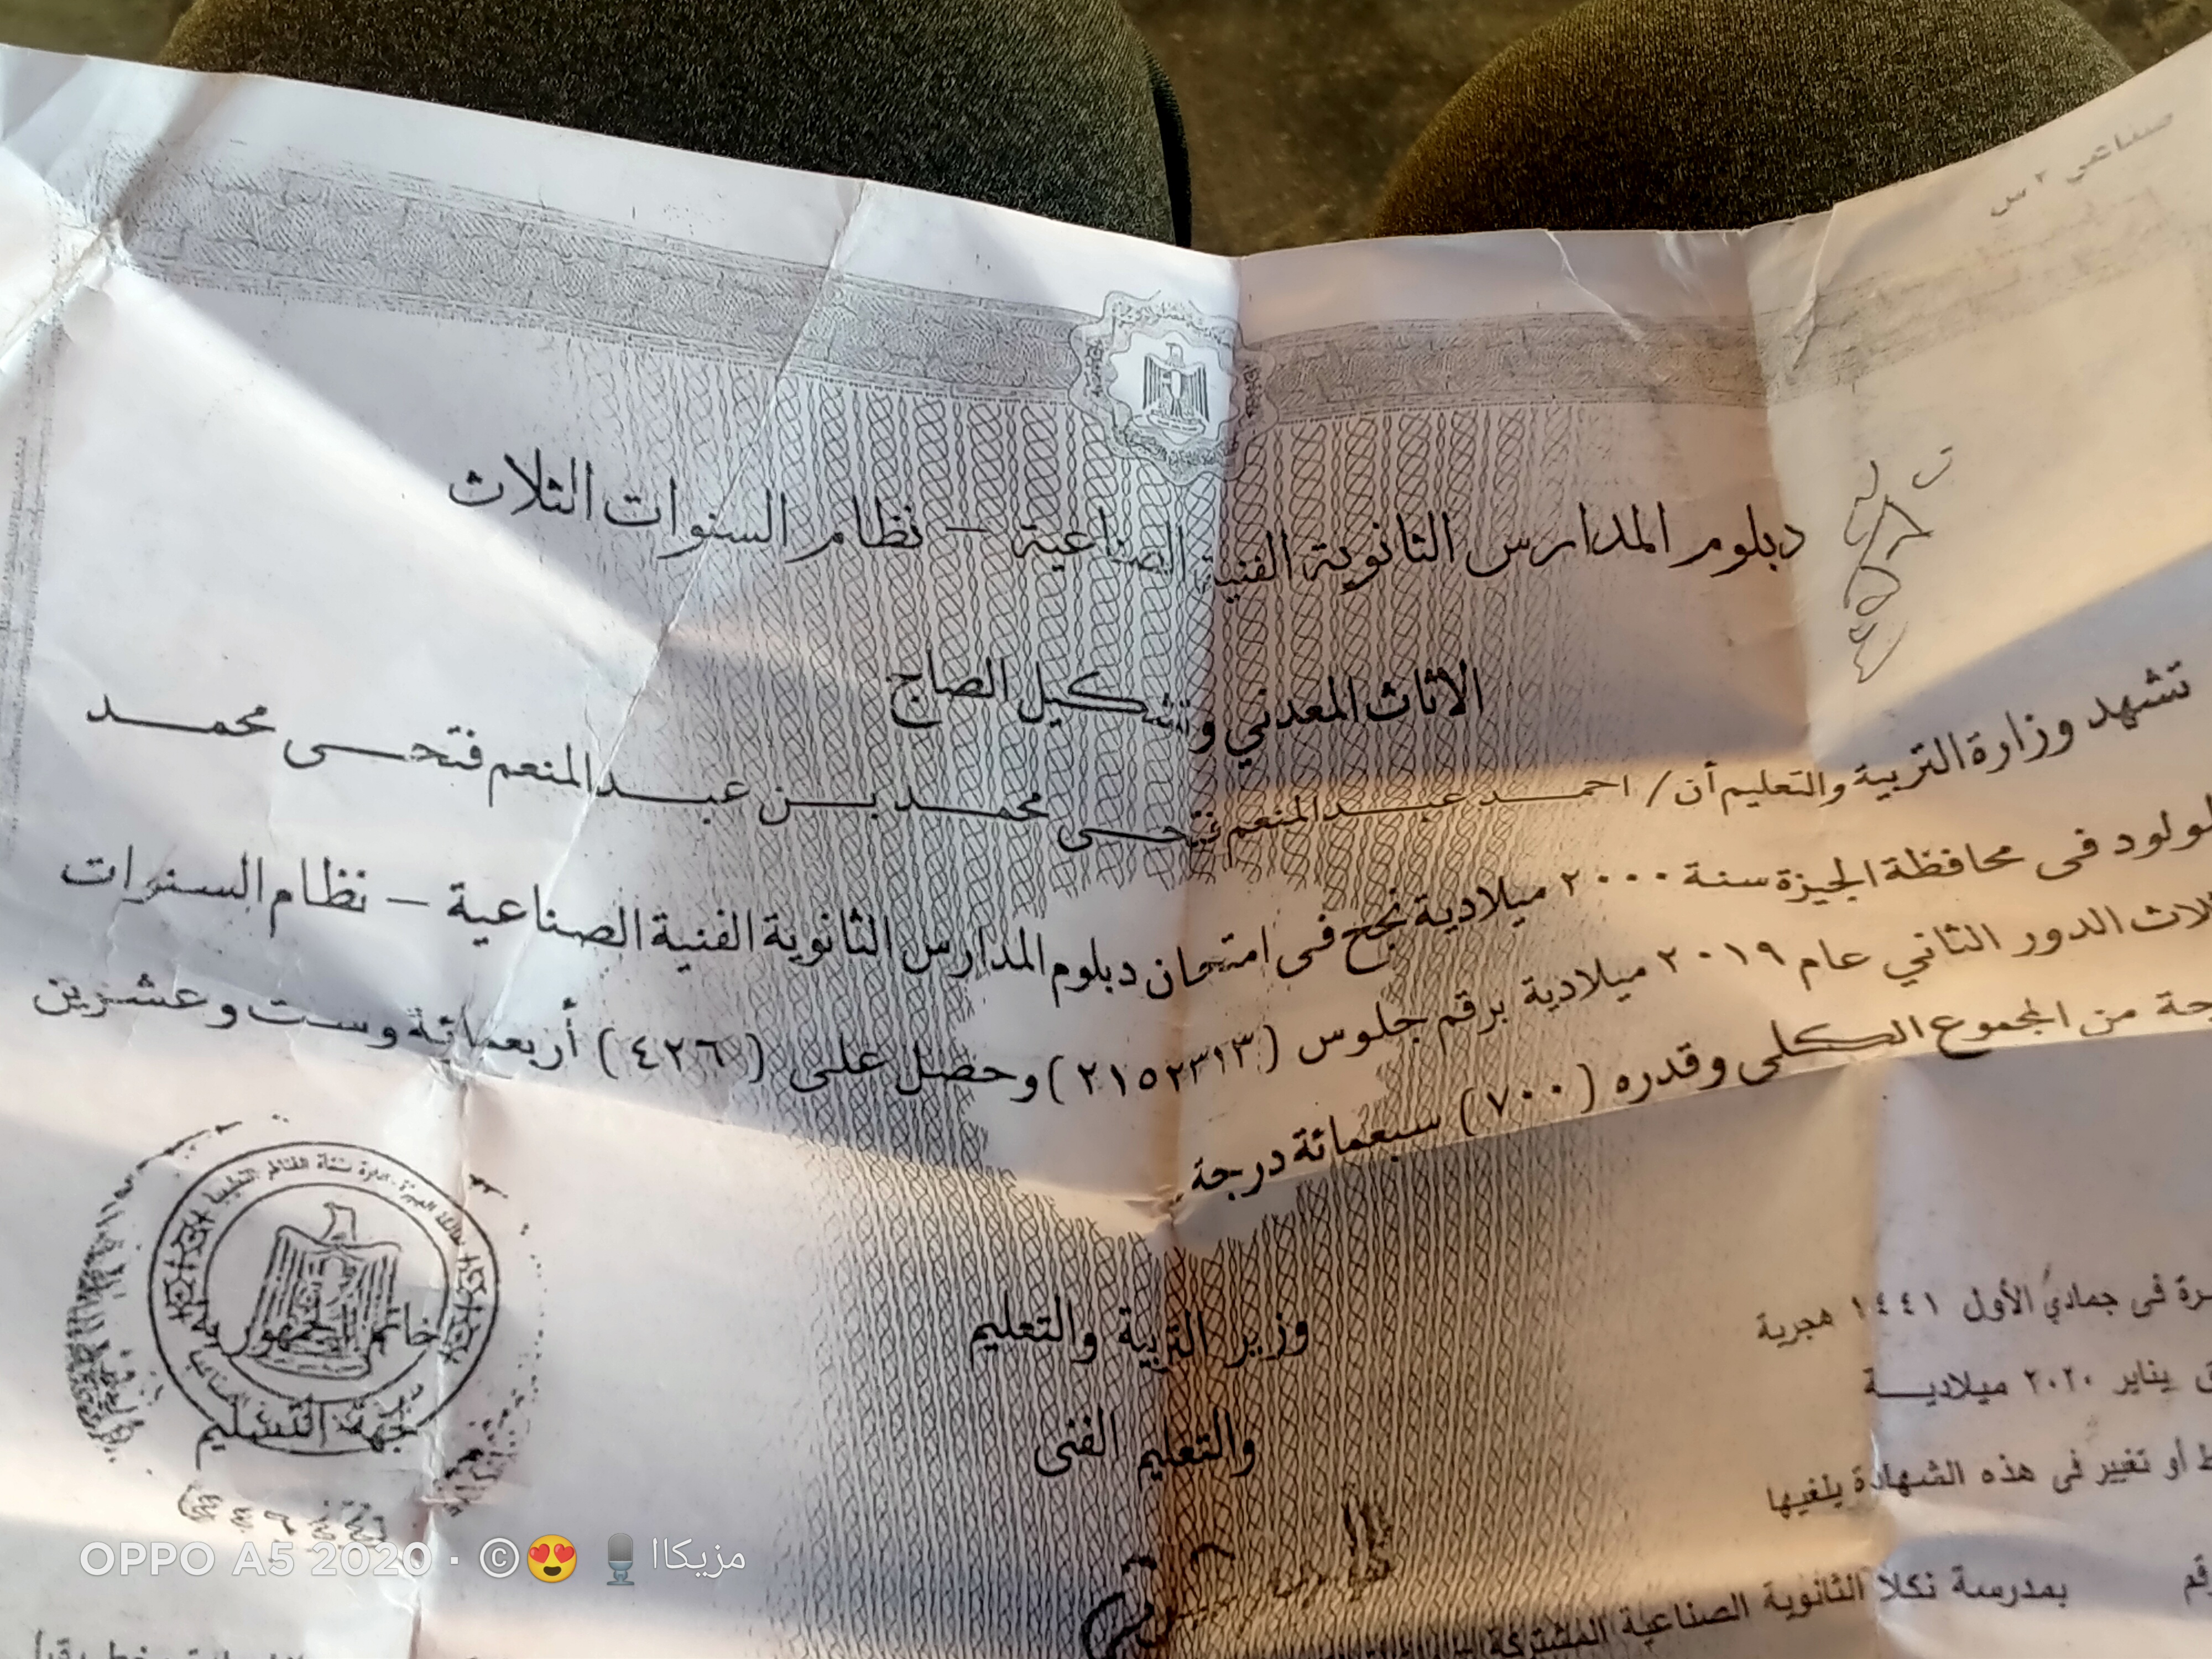 صناعي ٣ س
دبلوم المدارس الثانوية الفنية الصناعية - نظام السنوات الثلاث
الاثاث المعدني وتشكيل الصاج
تشهد وزارة التربية والتعليم أن / احمد عبد المنعم فتحى محمد بن عبد المنعم فتحى محمد
لولود فى محافظة الجيزة سنة ٢٠٠٠ ميلادية نجح فى امتحان دبلوم المدارس الثانوية الفنية الصناعية - نظام السنوات
لاث الدور الثاني عام ٢٠١٩ ميلادية برقم جلوس (٢١٥٢٣١٣) وحصل على (٤٢٦) أربعمائة وست وعشرين
جة من المجموع الكلى وقدره (٧٠٠) سبعمائة درجة
رة فى جمادي الأول ١٤٤١ هجرية
ق يناير ٢٠٢٠ ميلادية
ط أو تغيير فى هذه الشهادة يلغيها
وزير التربية والتعليم
والتعليم الفنى
خاتم الجمهورية
جهة التسليم
قم بمدرسة نكلا الثانوية الصناعية المشتركة
OPPO A5 2020 · ©😍🎙️مزيكاا